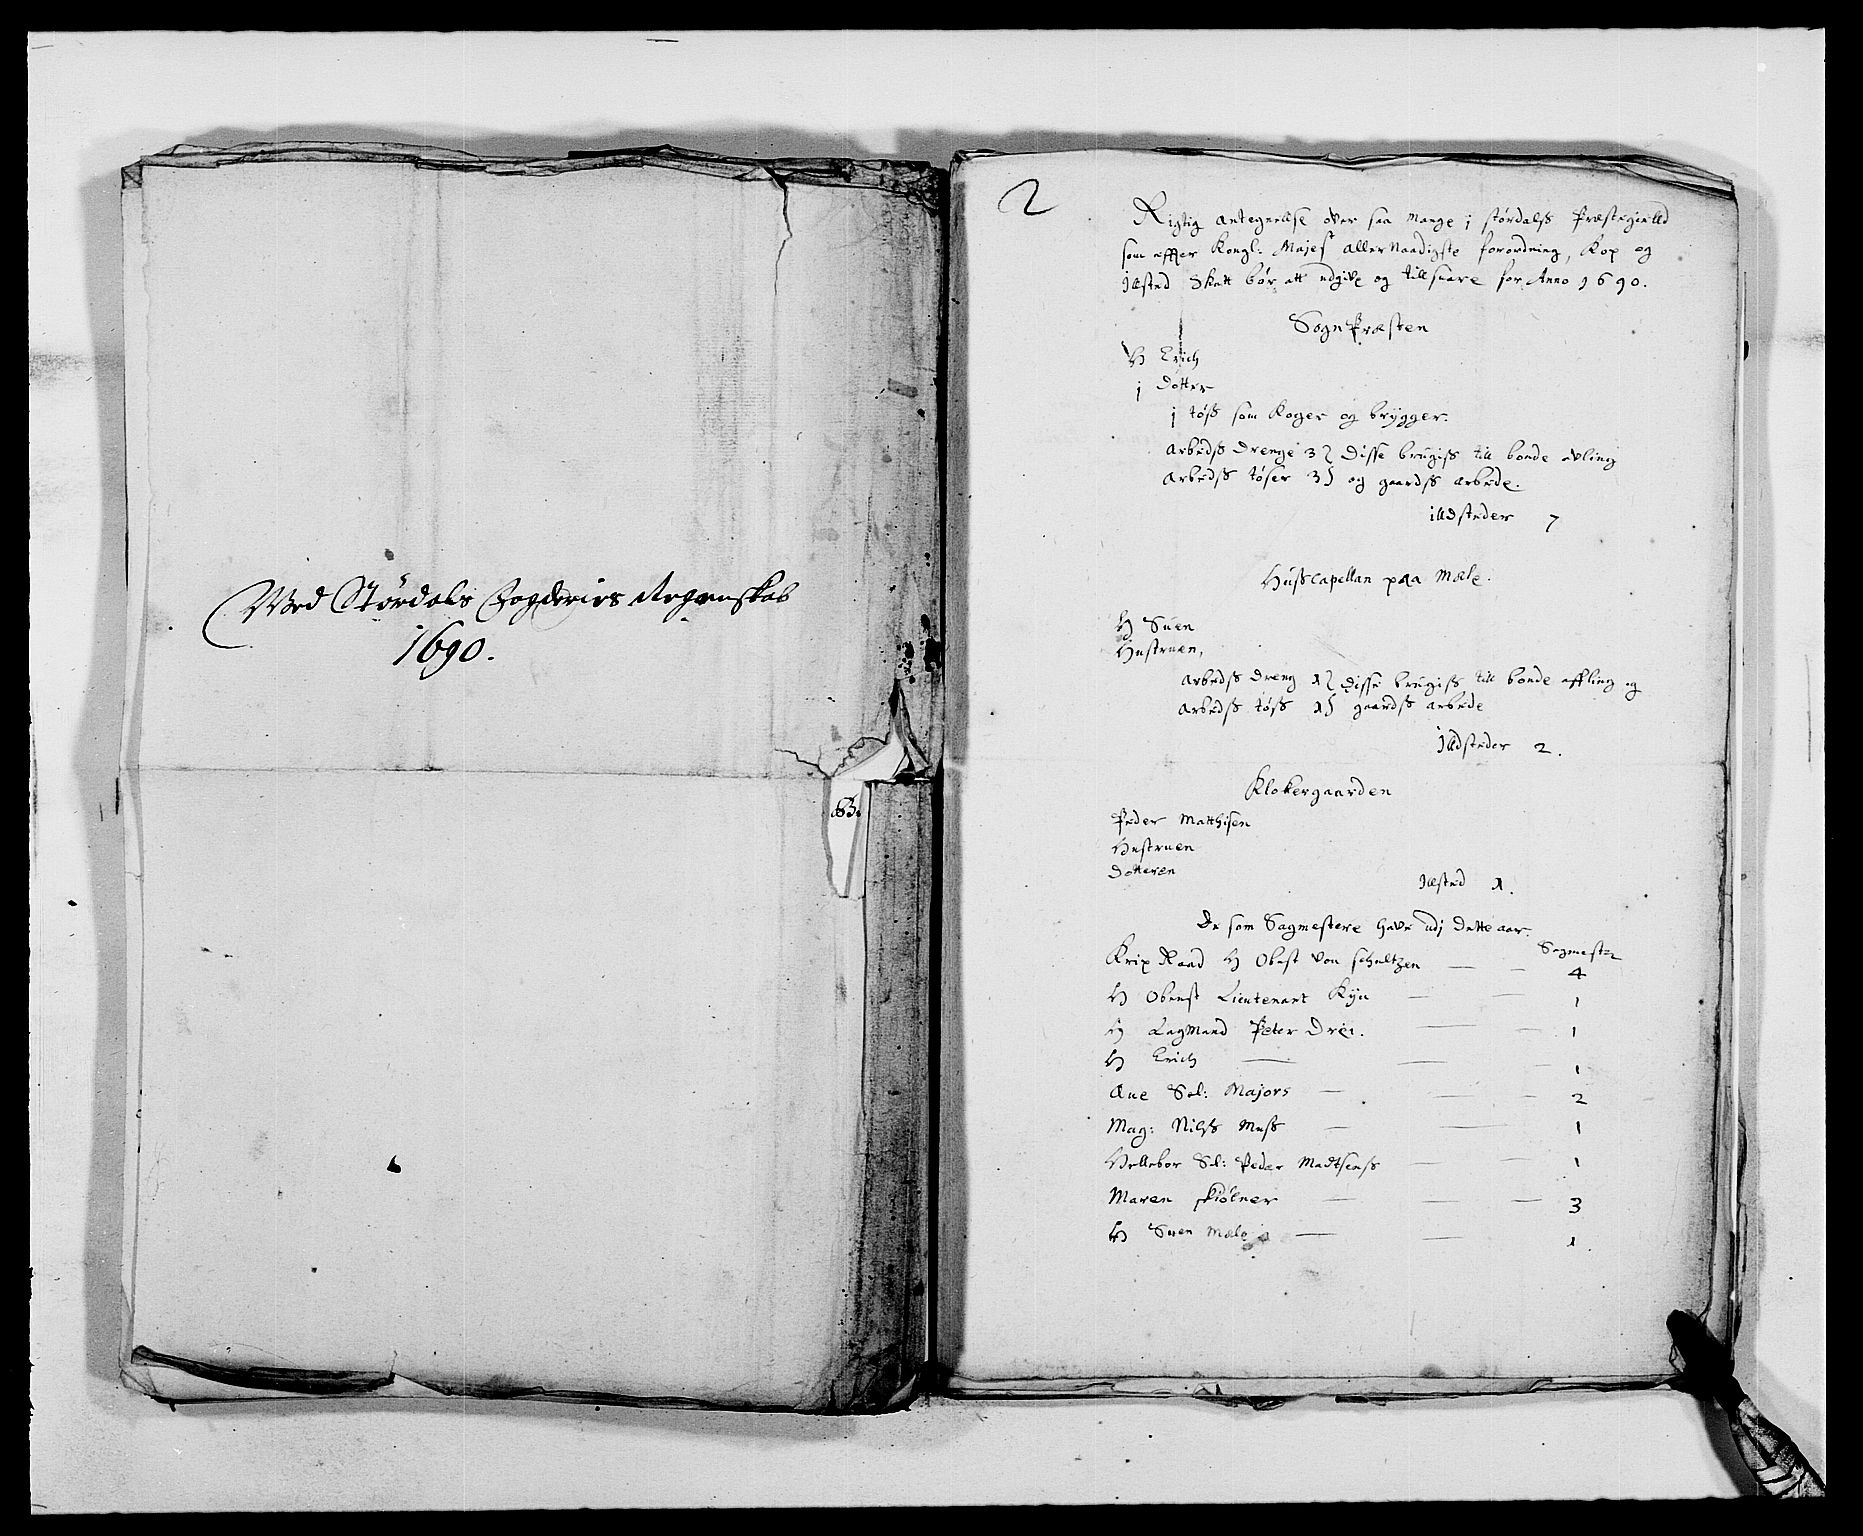 Wed Størdals Fogderies Regenskab
1690.
2
Rigtig antegnelse ofver saa mange i størdalss Præstegielld
som effter Kongl: Majest allernaadigste forordning, Kop og
Ildsted Skatt bør att udgive og tillsuare for Anno 1690.
SognPræsten
H Erich
j dotter
j tøss som koger og brygger.
arbedss drenge 3 disse brugiss till bonde afling
arbedss tøser 3 og gaardss arbede.
illdsteder 7
Husscapellan paa Mæle.
H Suen
Hustruen,
arbedss dreng 1 disse brugiss till bonde affling og
arbedss tøss 1 gaardss arbede
Jldsteder 2.
Klokergaarden
Peder Matthisen
Hustruen
Dotteren
Jldsted 1.
De som Sagmestere hafve udj dette aar.
Sagmester
Krix Raad H Obest von schultzen 4
H Oberst Lieutenant Kyn 1
H Lagmand Peter Drei. 1
H Erich 1
Ane Sal: Majors 2
Mag: Nilss Muss 1
Hellebor Sl: Peder Madtsenss 1
Maren skiølner 3
H Suen Mæle 1.